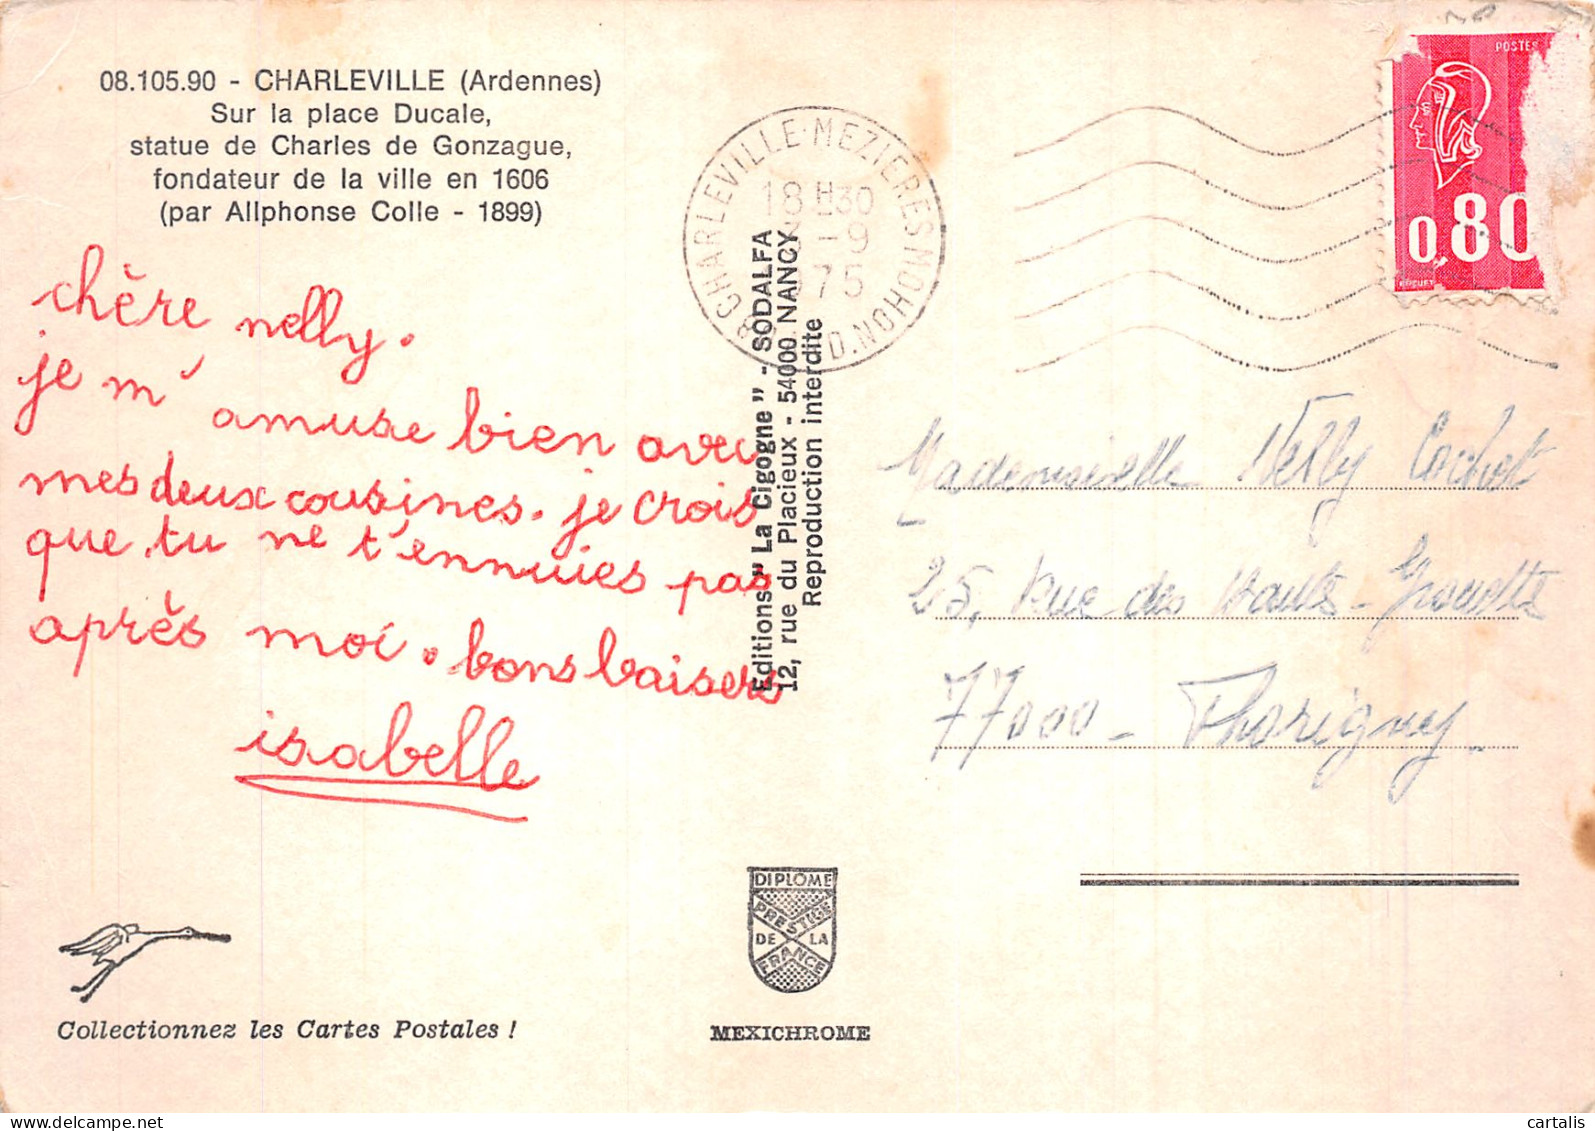 08.105.90 - CHARLEVILLE (Ardennes)
Sur la place Ducale,
statue de Charles de Gonzague,
fondateur de la ville en 1606
(par Allphonse Colle - 1899)
chère nelly.
je m' amuse bien avec
mes deux cousines. je crois
que tu ne t'ennuies pas
après moi. bons baisers
isabelle
Collectionnez les Cartes Postales !
CHARLEVILLE-MEZIERES MOHON
18H30
-9
75
Editions "La Cigogne" - SODALFA
12, rue du Placieux - 54000 NANCY
Reproduction interdite
DIPLOME
PRESTIGE
DE LA
FRANCE
MEXICHROME
POSTES
0,80
Mademoiselle Nelly Cochet
25, Rue des Hauts-
77000 - Thorigny
cartalis
www.delcampe.net